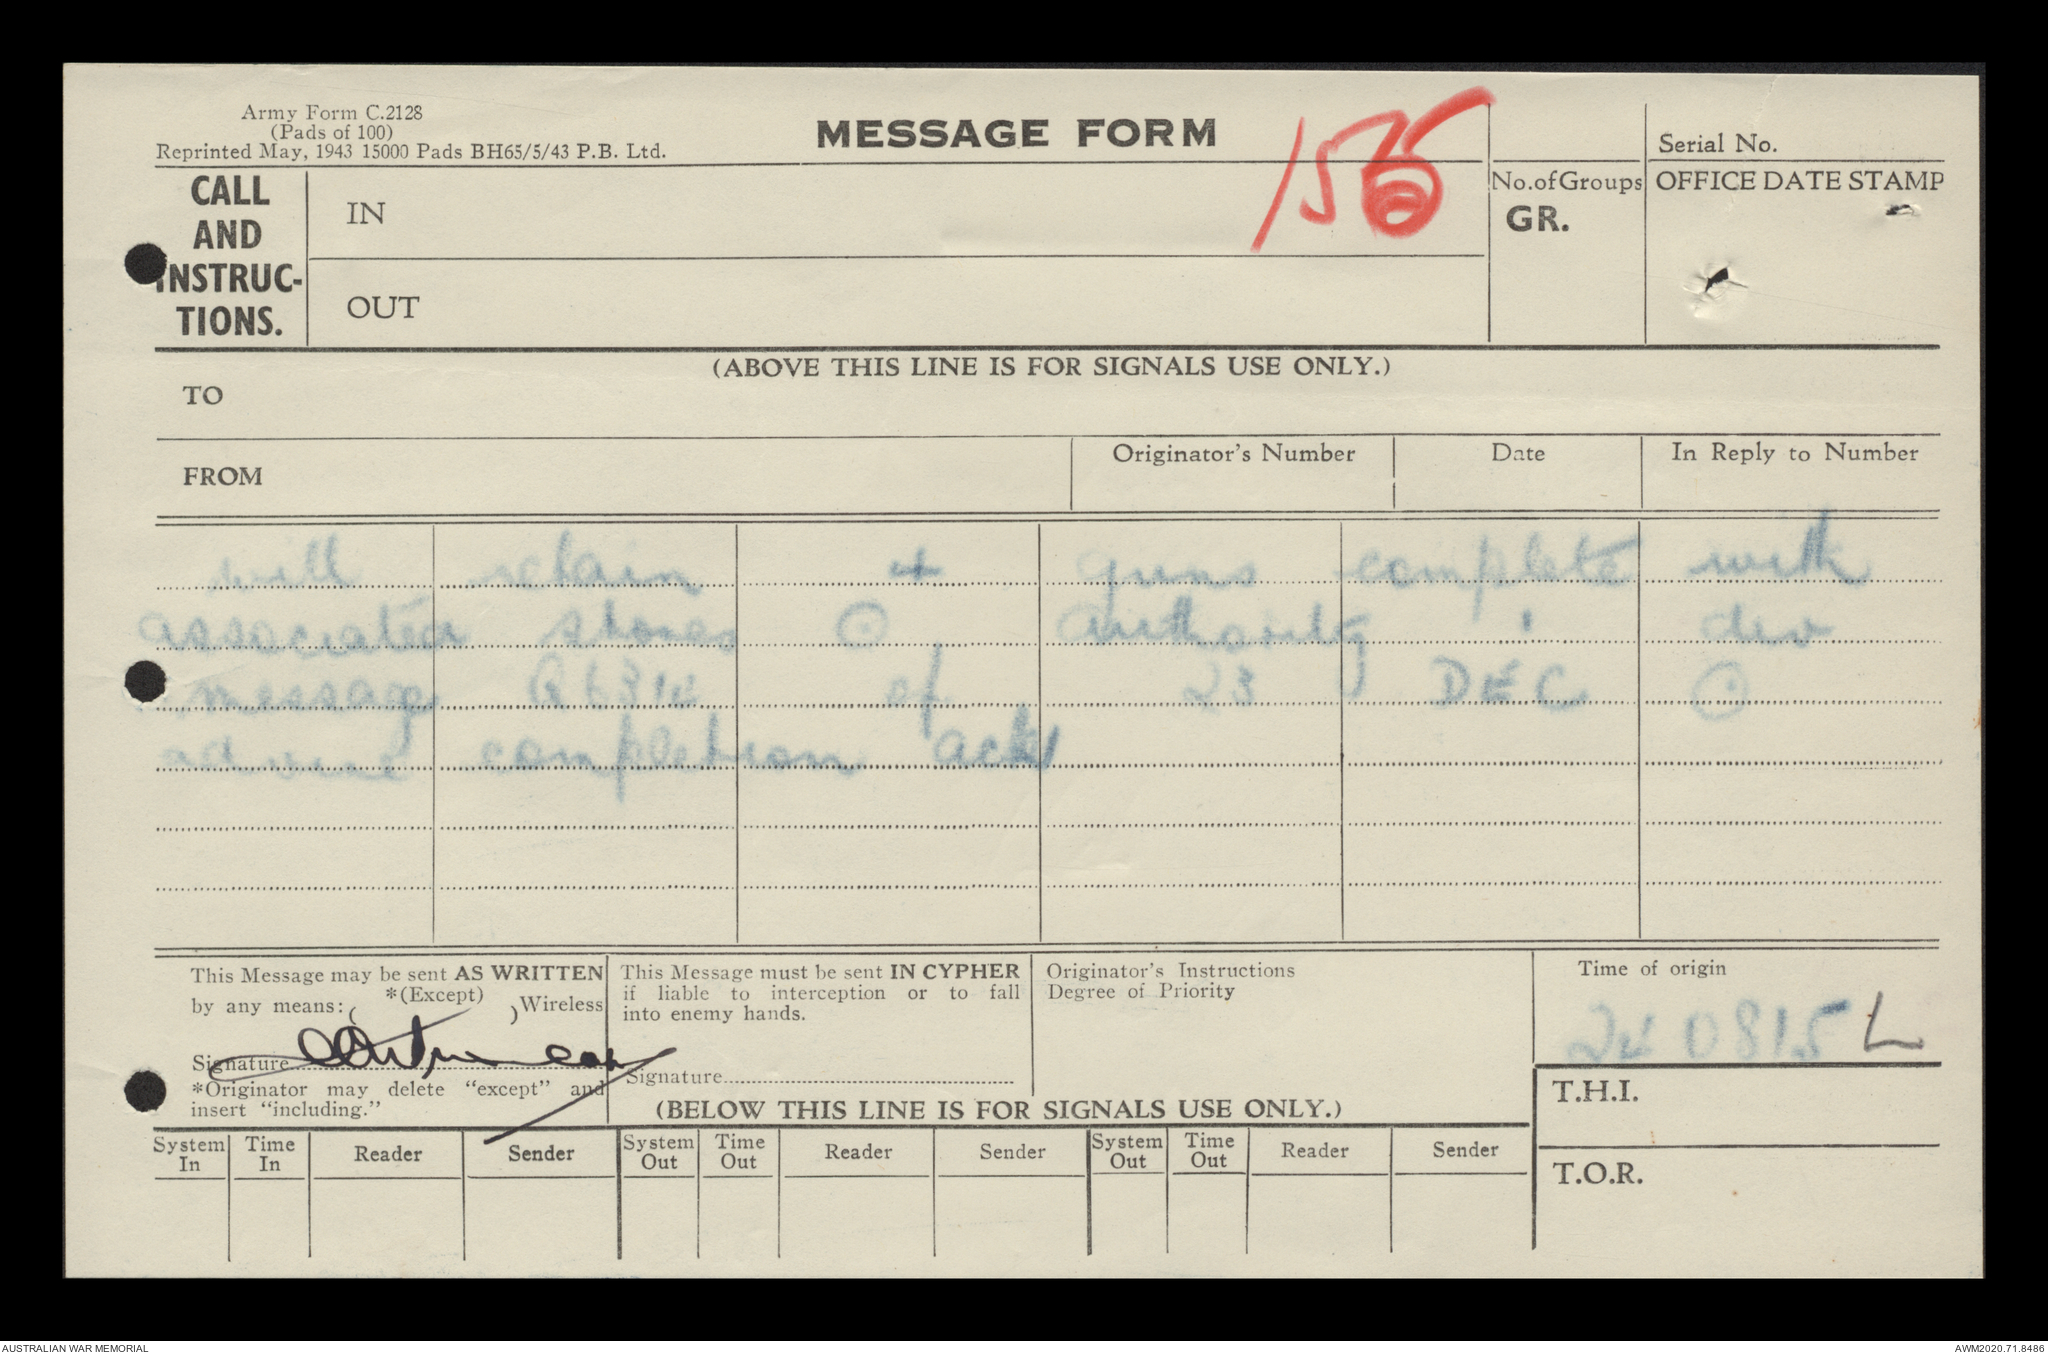 Army Form C.2128
(Pads of 100)
Reprinted May, 1943 15000 Pads BH65/5/43 P.B. Ltd.
MESSAGE FORM
156
Serial No.
CALL
AND
INSTRUC-
TIONS.
IN
OUT
No. of Groups
GR.
OFFICE DATE STAMP
(ABOVE THIS LINE IS FOR SIGNALS USE ONLY.)
TO
FROM
Originator's Number
Date
In Reply to Number
will retain 4 guns complete with
associated stores ⊙ Authority 1 div
message of 23 DEC ⊙
advise completion ack
This Message may be sent AS WRITTEN
by any means: ( *(Except) ) Wireless
Signature
*Originator may delete "except" and
insert "including."
This Message must be sent IN CYPHER
if liable to interception or to fall
into enemy hands.
Signature
Originator's Instructions
Degree of Priority
Time of origin
240815 L
T.H.I.
T.O.R.
(BELOW THIS LINE IS FOR SIGNALS USE ONLY.)
System In Time In Reader Sender System Out Time Out Reader Sender System Out Time Out Reader Sender
AUSTRALIAN WAR MEMORIAL
AWM2020.71.8486